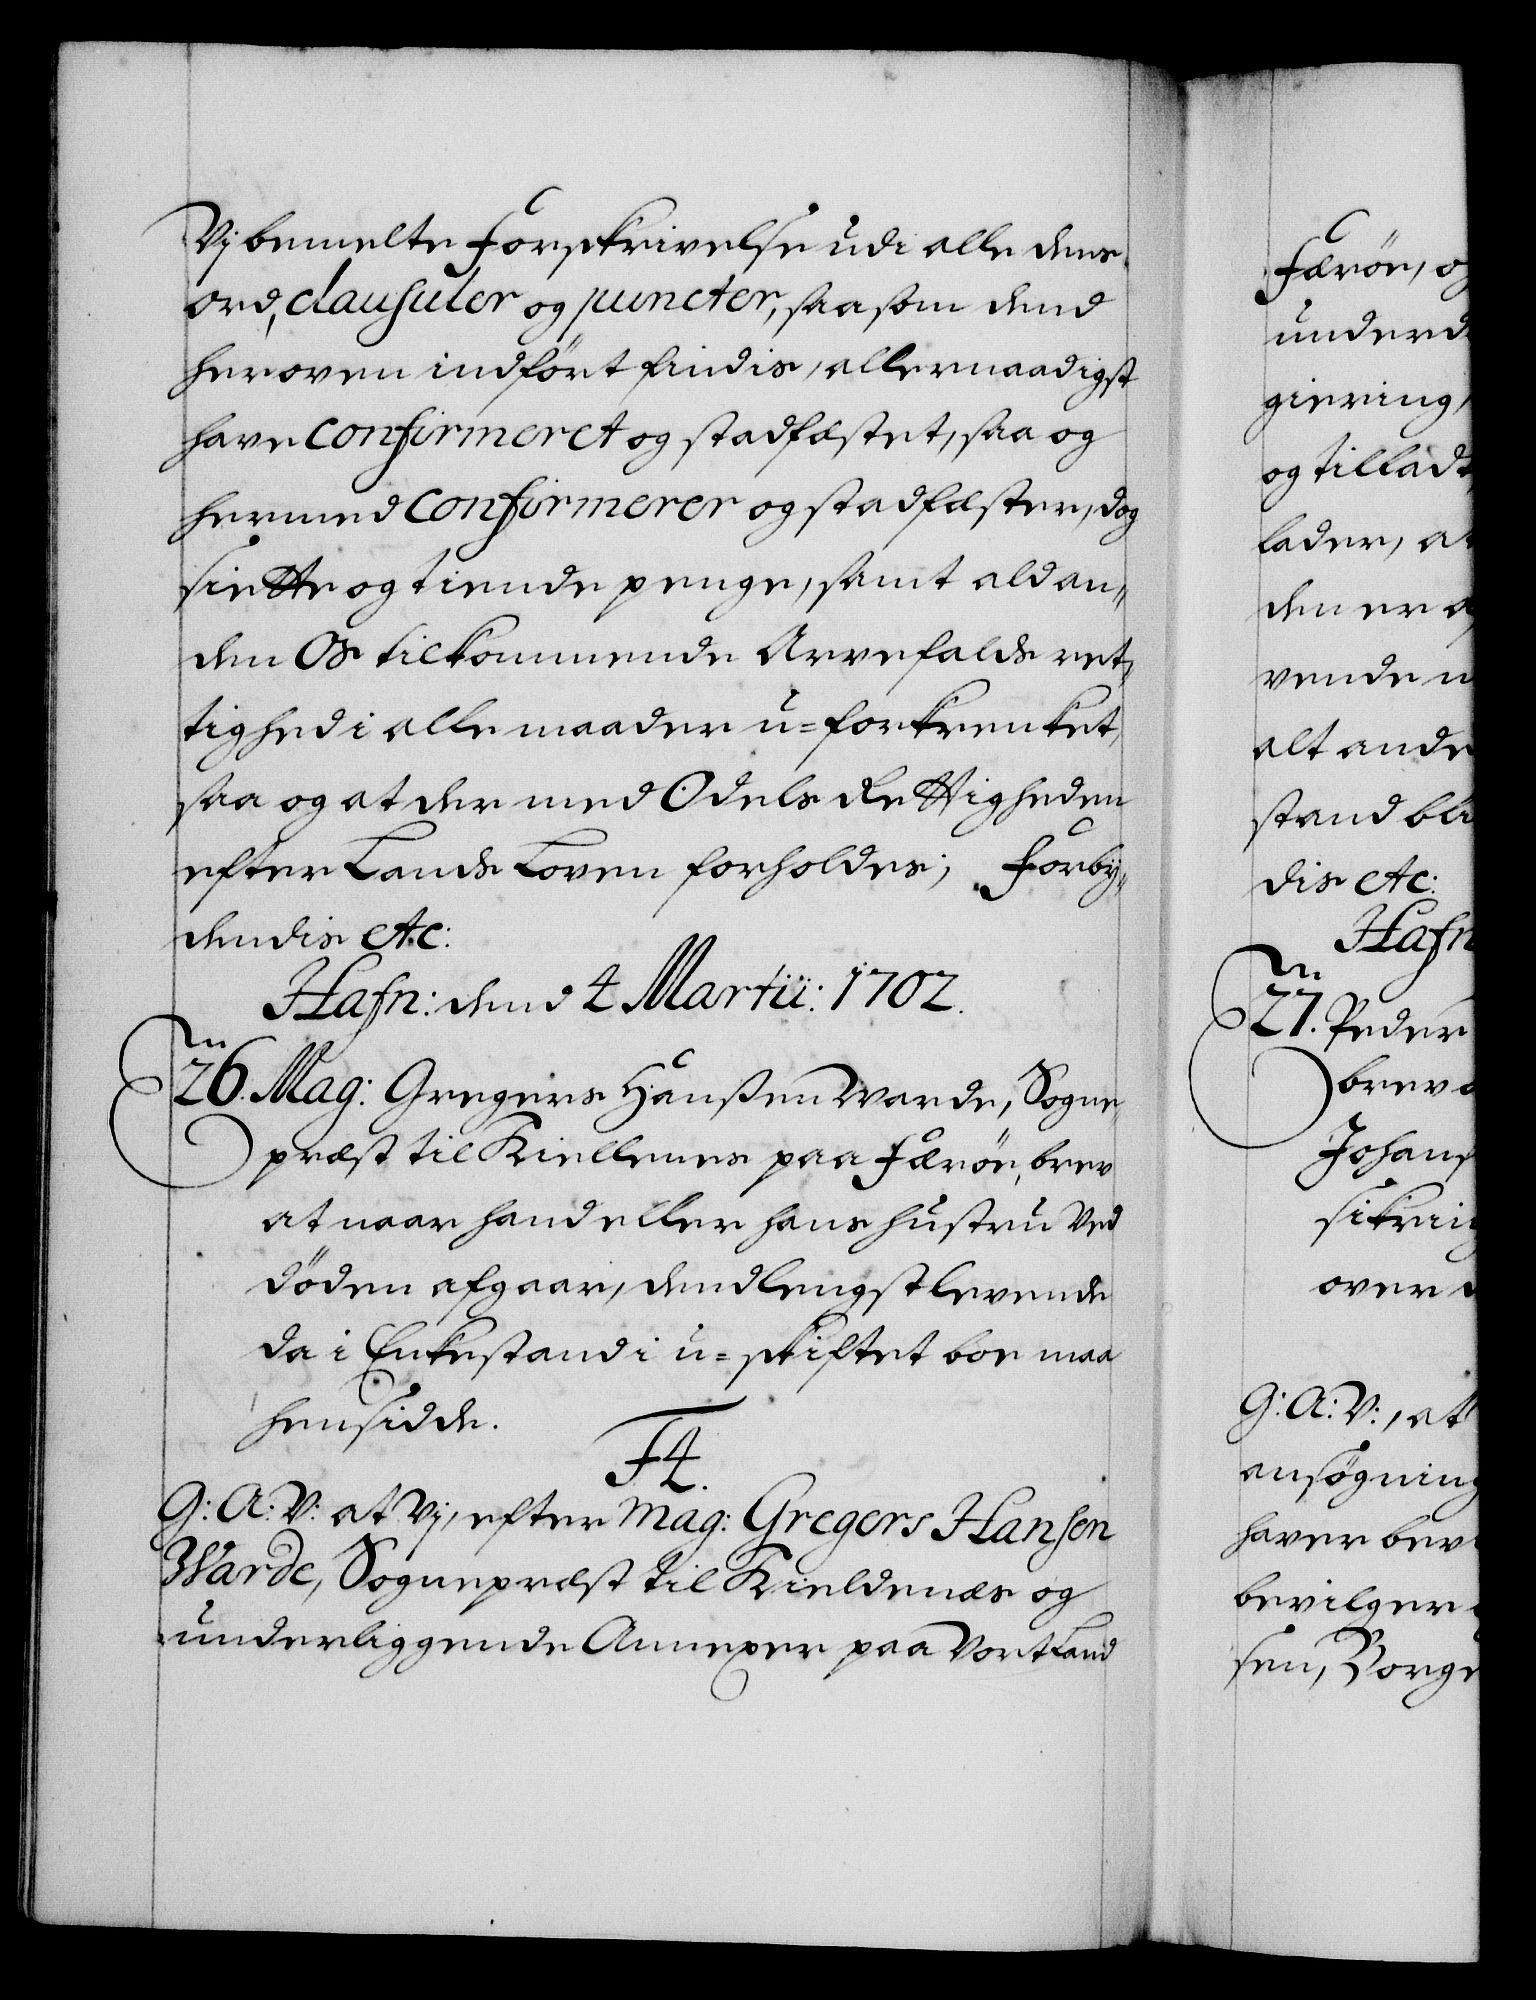 Vj bemelte Forskrivelse udi alle dens
ord, clausuler og puncter, saasom dend
heroven indført findis, allernaadigst
have confirmeret og stadfæstet, saa og
hermed confirmerer og stadfæster, dog
siette og tiende penge, samt ald an„
den Os tilkommende Arvefalds ret„
tighed i alle maader u=forkrenket,
saa og at der med Odels Rettigheden
efter Lands Loven forholdes; Forby„
dendis etc:
Hafn: dend 4 Martii: 1702.
26. Mag: Gregers Hanßen Warde, Sogne
præst til Kiellenes paa Færöe, brev
at naar hand eller hans hustru ved
döden afgaar, dend lengstlevende
da i Enkestand i u=skiftet boe maa
hensidde.
F4.
G: A: V: at Vj, efter Mag: Gregers Hansen
Warde, Sognepræst til Kieldenæs og
underliggende Annexer paa Vort Land
Færöe, og
underd
giering,
og tilladt,
lader, at
den er a
vende u
alt ande
stand bli
dis etc:
Hafn
27. Peder
brev a
Johans
sikring
over
G: A: V:, at
ansøgning
haver bevi
bevilger
sen, Borge